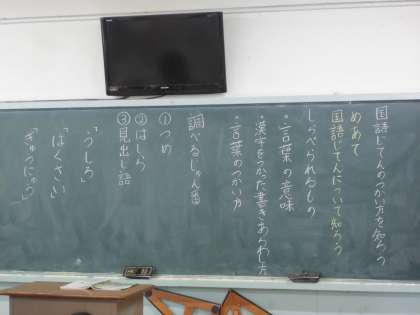 国語じてんのつかい方を知ろう
めあて
国語じてんについて知ろう
しらべられるもの
・言葉の意味
・漢字をつかった書きあらわし方
・言葉のつかい方
調べるじゅん番
①つめ
②はしら
③見出し語
「うしろ」
「はくさい」
「ぎゅうにゅう」